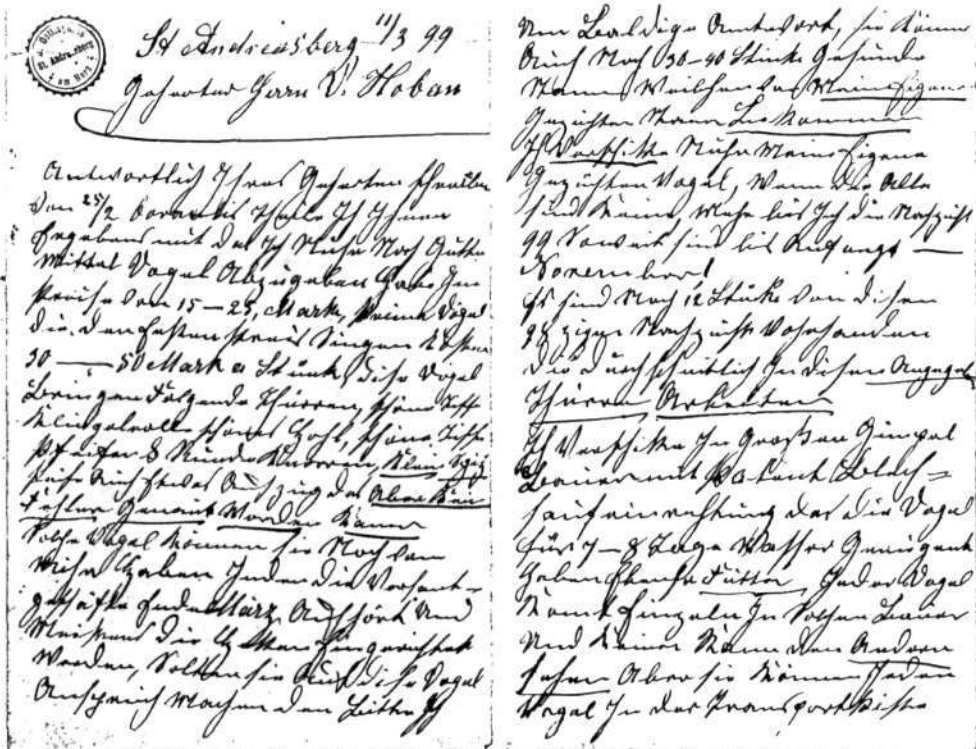 St. Andreasberg
am Harz
St Andreasberg 11/3 99
Geherter Herrn V. Hoban
Antwortlich Ihres Geherten schreiben
von 25/2 Theile Ich Ihnen
Ergebens mit das Ich Noch Gutte
Mittel Vogel Abzugeben habe Im
Preise von 15–25, Mark, Vogel
die den Singen kosten
30 — 50 Mark a Stück, dise Vogel
Bringen Folgende Thurren, schöne
Klingelrolle schönes Hohl, schöne Tiefe
Pfeifen & Runde Knorren,
Auch Etwas Aufzug das Aber Kein
Fehler Genant Worden Kann
Solche Vogel können sie Noch von
Mihr Haben Inden die Versant-
geschäfte Ende März, Aufhört Und
die Hekken Eingerichtet
Werden, Solten sie Auf dise Vogel
Anspruch Machen dan Bitte Ich
Um Baldige Antwort, sie können
Auch Noch 30–40 Stück Gesunde
Stamm Weibhen das Mein Eigene
Gezüchten Stamm Bekommen
Ich Verschike Mein Eigene
Gezüchten Vogel, Wenn die Alle
sind keine Mehr bis Ich die Nachzücht
99 Soweit sind bis Anfangs —
November!
Es sind Noch 12 Stük von disen
98ziger Nachzücht Vohrhanden
Die Durchschnitlich In disen
Thurren Arbeiten
Ich Verschike In Großen Gimpel
Bauer mit Patent Blech=
saufeinrichtung das die Vogel
für 7–8 Tage Wasser Genügent
haben Ebenso Futter, Jeder Vogel
Komt Einzeln In Solchen Bauer
Und Keiner Kann den Andern
sehen Aber sie können Jeden
Vogel In der Transportkiste